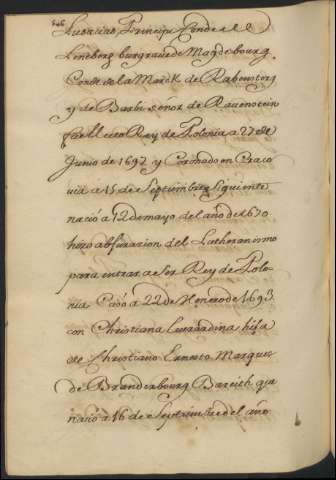 546
Lusacias, Principe Conde de
Leneberg burgrave de Magdebourg
Conde de la Marck de Ravenstorg
y de Barbi señor de Ravenstein
fue Electo Rey de Polonia a 27 de
Junio de 1697 y Coronado en Craco
via a 15 de Septiembre siguiente
nació a 12 de mayo del año de 1670
hizo abjuracion del Lutheranismo
para entrar a ser Rey de Polo-
nia Casó a 22 de Henero de 1693
con Christiana Everardina hija
de Christiano Ernesto Marques
de Branderbourg Bareith que
nació a 16 de Septiembre del año